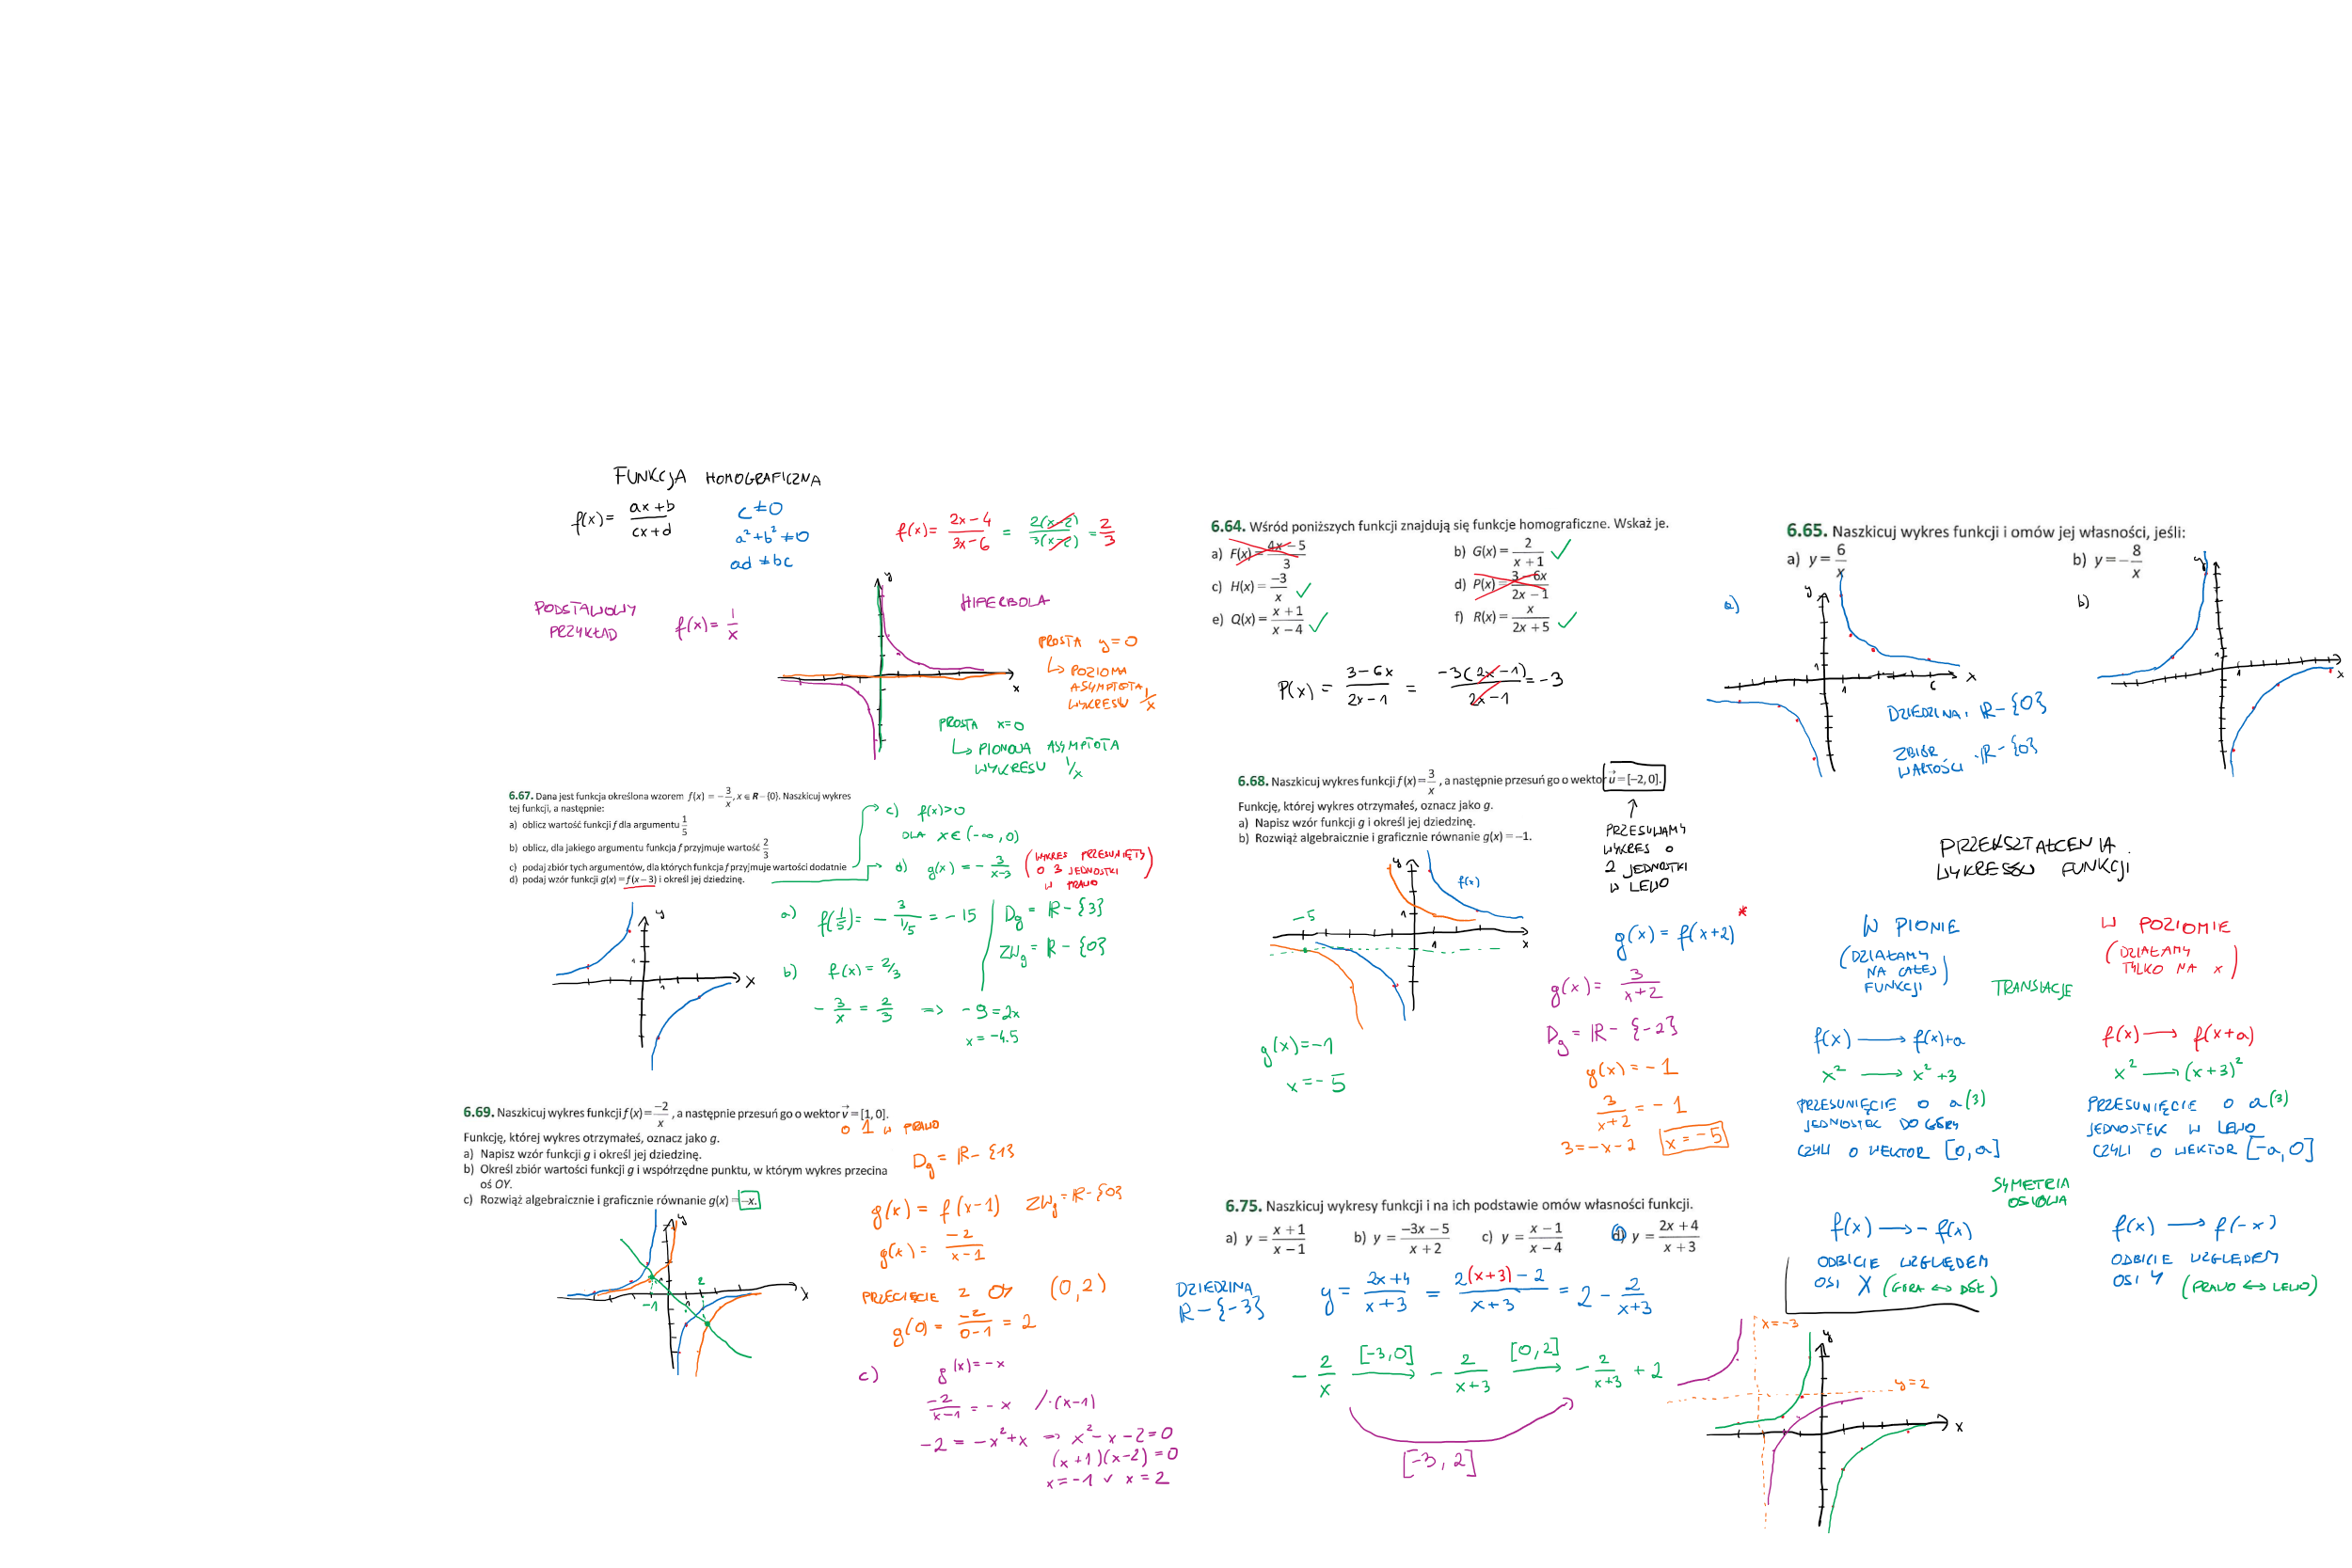 FUNKCJA HOMOGRAFICZNA
f(x) = (ax+b)/(cx+d)
c ≠ 0
a² + b² ≠ 0
ad ≠ bc
f(x) = (2x-4)/(3x-6) = 2(x-2)/3(x-2) = 2/3
PODSTAWOWY PRZYKŁAD f(x) = 1/x
HIPERBOLA
y
x
PROSTA y=0
↳ POZIOMA
ASYMPTOTA
WYKRESU 1/x
PROSTA x=0
↳ PIONOWA ASYMPTOTA
WYKRESU 1/x
6.64. Wśród poniższych funkcji znajdują się funkcje homograficzne. Wskaż je.
a) F(x) = (4x-5)/3
b) G(x) = 2/(x+1) ✓
c) H(x) = -3/x ✓
d) P(x) = (3-6x)/(2x-1)
e) Q(x) = (x+1)/(x-4) ✓
f) R(x) = x/(2x+5) ✓
P(x) = (3-6x)/(2x-1) = -3(2x-1)/(2x-1) = -3
6.65. Naszkicuj wykres funkcji i omów jej własności, jeśli:
a) y = 6/x
b) y = -8/x
a)
y
1
1
6
x
DZIEDZINA: ℝ-{0}
ZBIÓR WARTOŚCI: ℝ-{0}
b)
y
1
1
x
6.67. Dana jest funkcja określona wzorem f(x) = -3/x, x ∈ R-{0}. Naszkicuj wykres
tej funkcji, a następnie:
a) oblicz wartość funkcji f dla argumentu 1/5
b) oblicz, dla jakiego argumentu funkcja f przyjmuje wartość 2/3
c) podaj zbiór tych argumentów, dla których funkcja f przyjmuje wartości dodatnie
d) podaj wzór funkcji g(x) = f(x-3) i określ jej dziedzinę.
c) f(x)>0
DLA x∈(-∞,0)
d) g(x) = -3/(x-3)
(WYKRES PRZESUNIĘTY
O 3 JEDNOSTKI
W PRAWO)
a) f(1/5) = -3/(1/5) = -15
D_g = ℝ-{3}
ZW_g = ℝ-{0}
b) f(x) = 2/3
-3/x = 2/3 => -9=2x
x = -4.5
y
1
1
x
6.68. Naszkicuj wykres funkcji f(x) = 3/x, a następnie przesuń go o wektor u = [-2, 0].
Funkcję, której wykres otrzymałeś, oznacz jako g.
a) Napisz wzór funkcji g i określ jej dziedzinę.
b) Rozwiąż algebraicznie i graficznie równanie g(x) = -1.
↑
PRZESUWAMY
WYKRES O
2 JEDNOSTKI
W LEWO
y
f(x)
-5
1
1
x
g(x) = f(x+2) *
g(x) = 3/(x+2)
D_g = ℝ-{-2}
g(x) = -1
3/(x+2) = -1
3 = -x-2
x = -5
g(x) = -1
x = -5
PRZEKSZTAŁCENIA
WYKRESÓW FUNKCJI
W PIONIE
(DZIAŁAMY
NA CAŁEJ
FUNKCJI)
W POZIOMIE
(DZIAŁAMY
TYLKO NA x)
TRANSLACJE
f(x) → f(x)+a
x² → x²+3
PRZESUNIĘCIE O a(3)
JEDNOSTEK DO GÓRY
CZYLI O WEKTOR [0,a]
f(x) → f(x+a)
x² → (x+3)²
PRZESUNIĘCIE O a(3)
JEDNOSTEK W LEWO
CZYLI O WEKTOR [-a,0]
SYMETRIA
OSIOWA
f(x) → -f(x)
ODBICIE WZGLĘDEM
OSI X (GÓRA ↔ DÓŁ)
f(x) → f(-x)
ODBICIE WZGLĘDEM
OSI Y (PRAWO ↔ LEWO)
6.69. Naszkicuj wykres funkcji f(x) = -2/x, a następnie przesuń go o wektor v = [1, 0].
O 1 W PRAWO
Funkcję, której wykres otrzymałeś, oznacz jako g.
a) Napisz wzór funkcji g i określ jej dziedzinę.
b) Określ zbiór wartości funkcji g i współrzędne punktu, w którym wykres przecina
oś OY.
c) Rozwiąż algebraicznie i graficznie równanie g(x) = -x.
D_g = ℝ-{1}
g(x) = f(x-1)
ZW_g = ℝ-{0}
g(x) = -2/(x-1)
PRZECIĘCIE Z OY (0,2)
g(0) = -2/(0-1) = 2
y
-1
2
x
c) g(x) = -x
-2/(x-1) = -x /·(x-1)
-2 = -x²+x => x²-x-2=0
(x+1)(x-2)=0
x=-1 ∨ x=2
6.75. Naszkicuj wykresy funkcji i na ich podstawie omów własności funkcji.
a) y = (x+1)/(x-1)
b) y = (-3x-5)/(x+2)
c) y = (x-1)/(x-4)
d) y = (2x+4)/(x+3)
DZIEDZINA
ℝ-{-3}
y = (2x+4)/(x+3) = (2(x+3)-2)/(x+3) = 2 - 2/(x+3)
-2/x [-3,0] → -2/(x+3) [0,2] → -2/(x+3) + 2
[-3,2]
x=-3
y
y=2
x